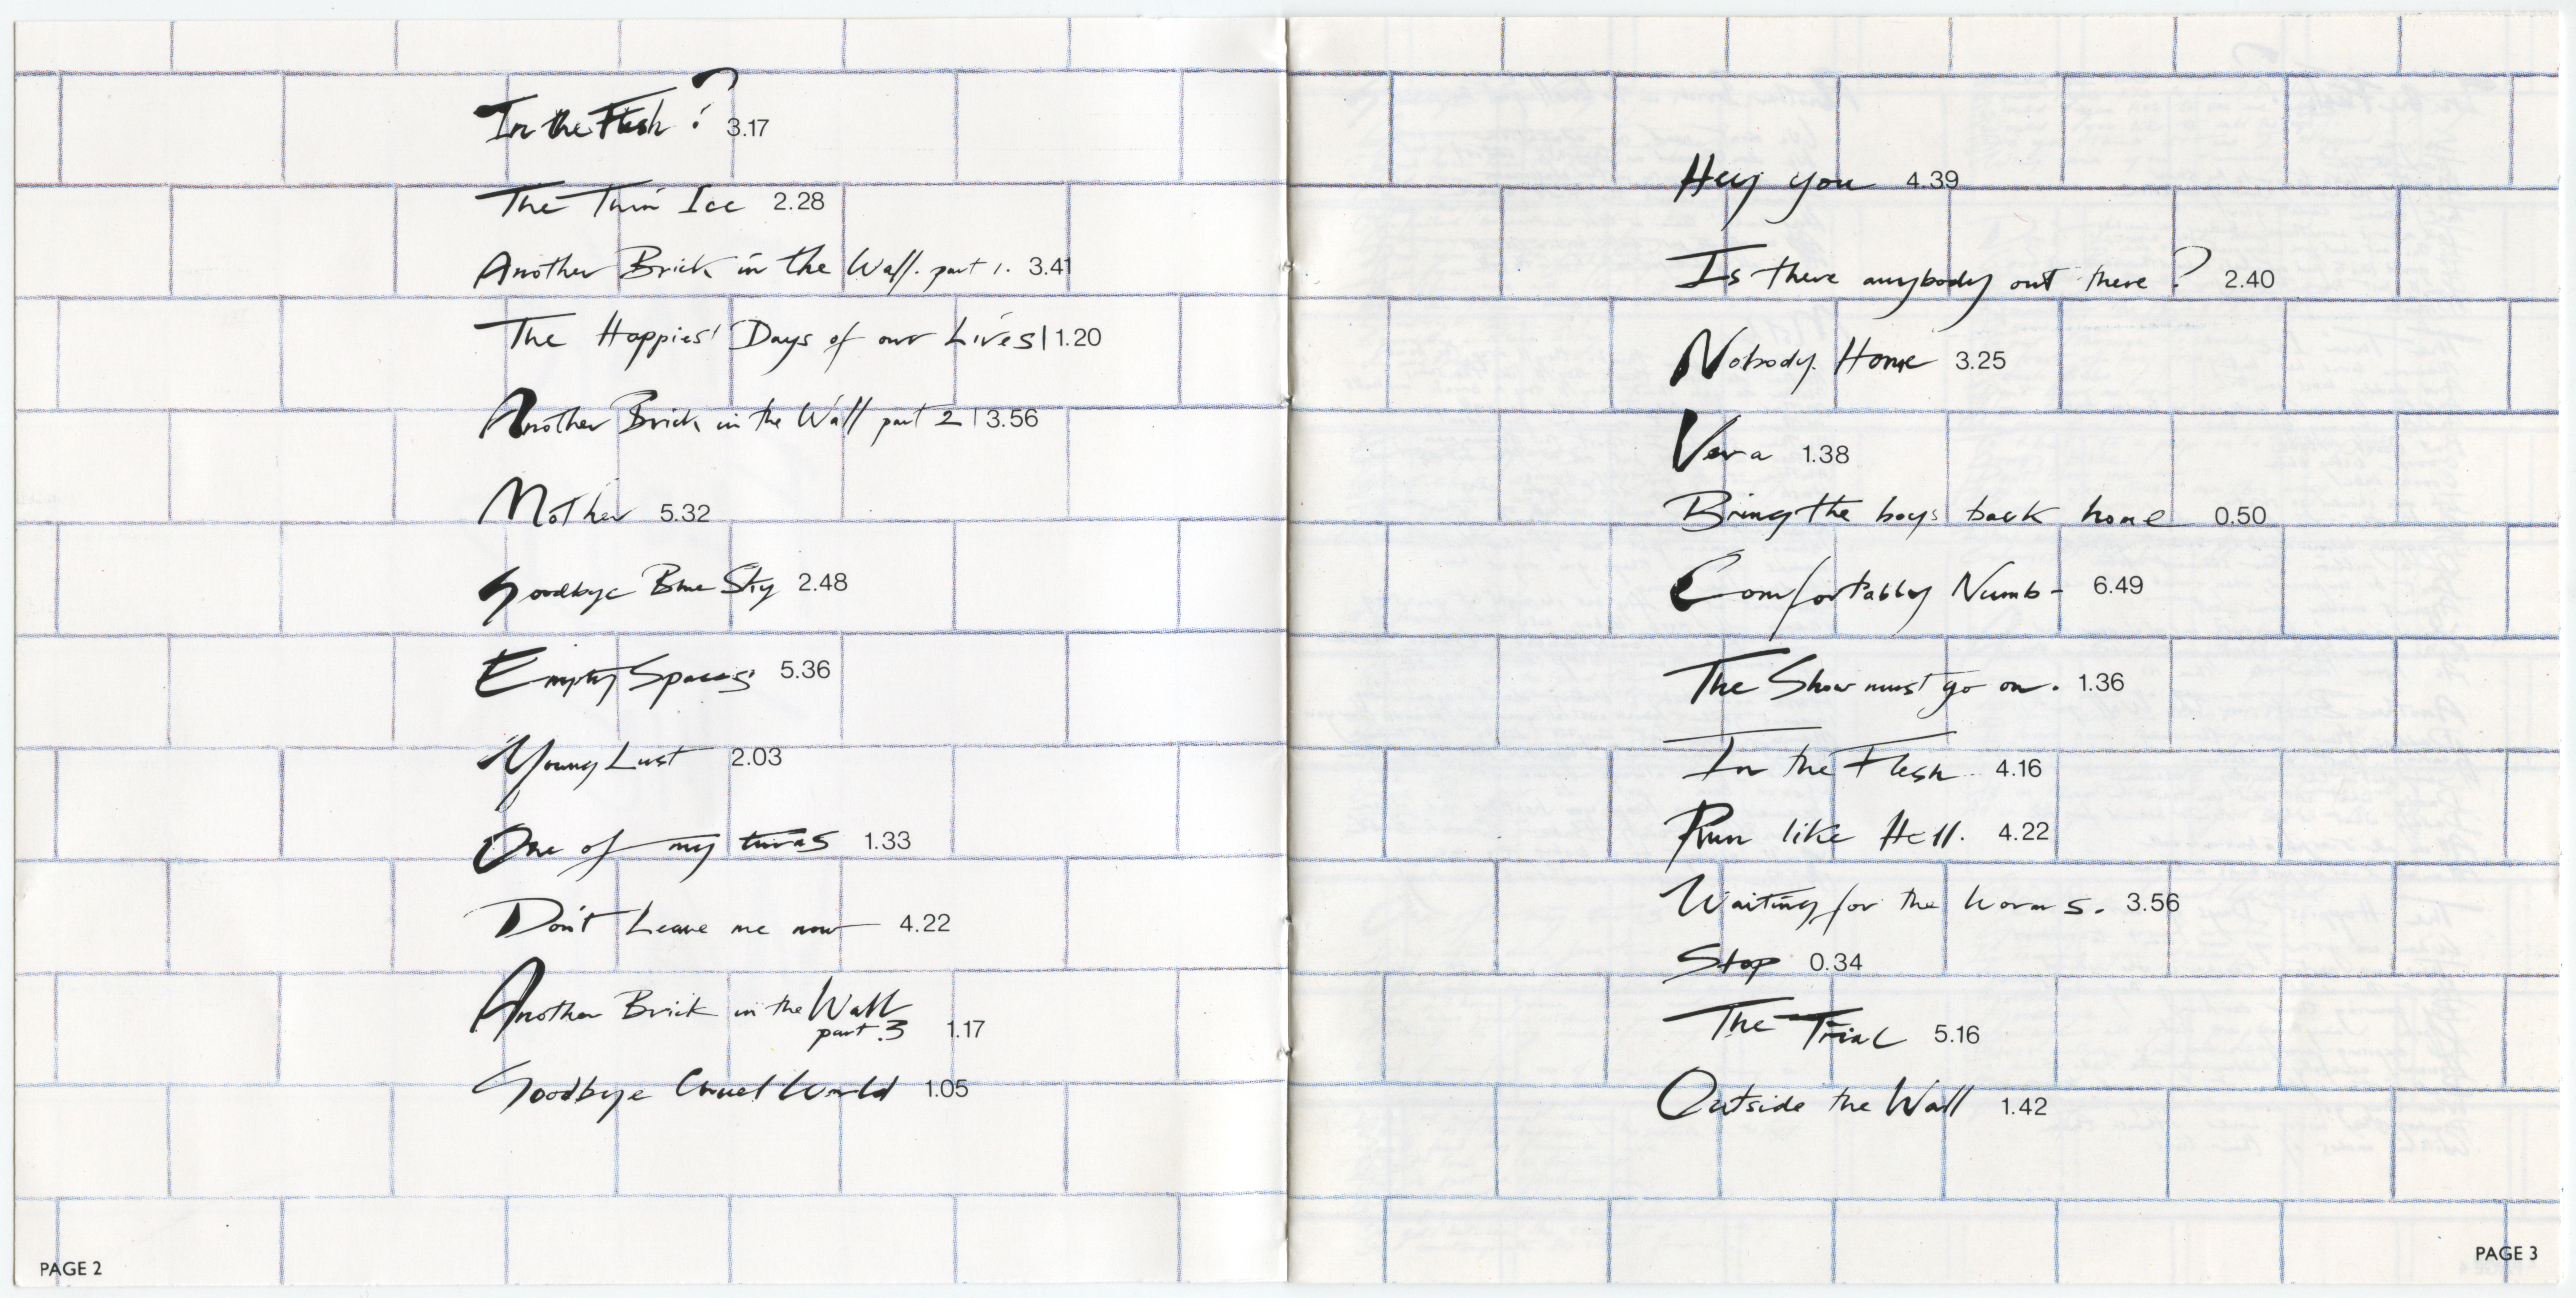 In the Flesh? 3.17
The Thin Ice 2.28
Another Brick in the Wall. part 1. 3.41
The Happiest Days of our Lives 1.20
Another Brick in the Wall part 2 3.56
Mother 5.32
Goodbye Blue Sky 2.48
Empty Spaces 5.36
Young Lust 2.03
One of my turns 1.33
Don't Leave me now 4.22
Another Brick in the Wall
part.3 1.17
Goodbye Cruel World 1.05
PAGE 2
Hey you 4.39
Is there anybody out there? 2.40
Nobody Home 3.25
Vera 1.38
Bring the boys back home 0.50
Comfortably Numb- 6.49
The Show must go on. 1.36
In the Flesh 4.16
Run like Hell. 4.22
Waiting for the worms. 3.56
Stop 0.34
The Trial 5.16
Outside the Wall 1.42
PAGE 3